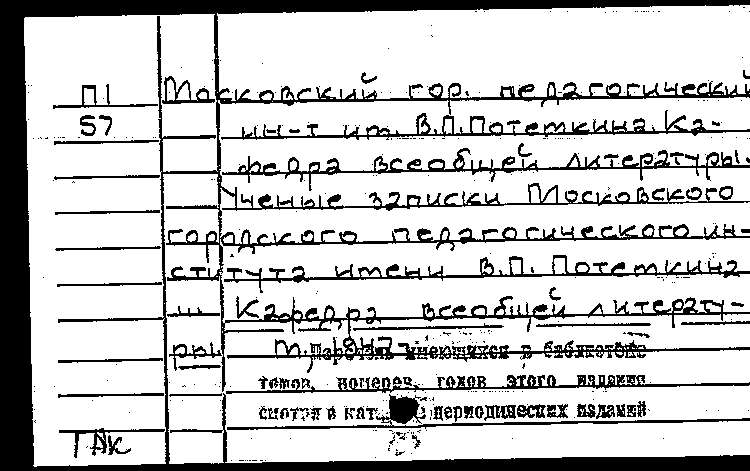 П1 Московский гор. педагогический
57 ин-т им. В.П.Потемкина. Ка-
федра всеобщей литературы.
Ученые записки Московского
городского педагогического ин-
ститута имени В.П. Потемкина
... Кафедра всеобщей литерату-
ры М., 1947-
Перечень имеющихся в библиотеке
томов, номеров, годов этого издания
смотри в кат. периодических изданий
ТАК